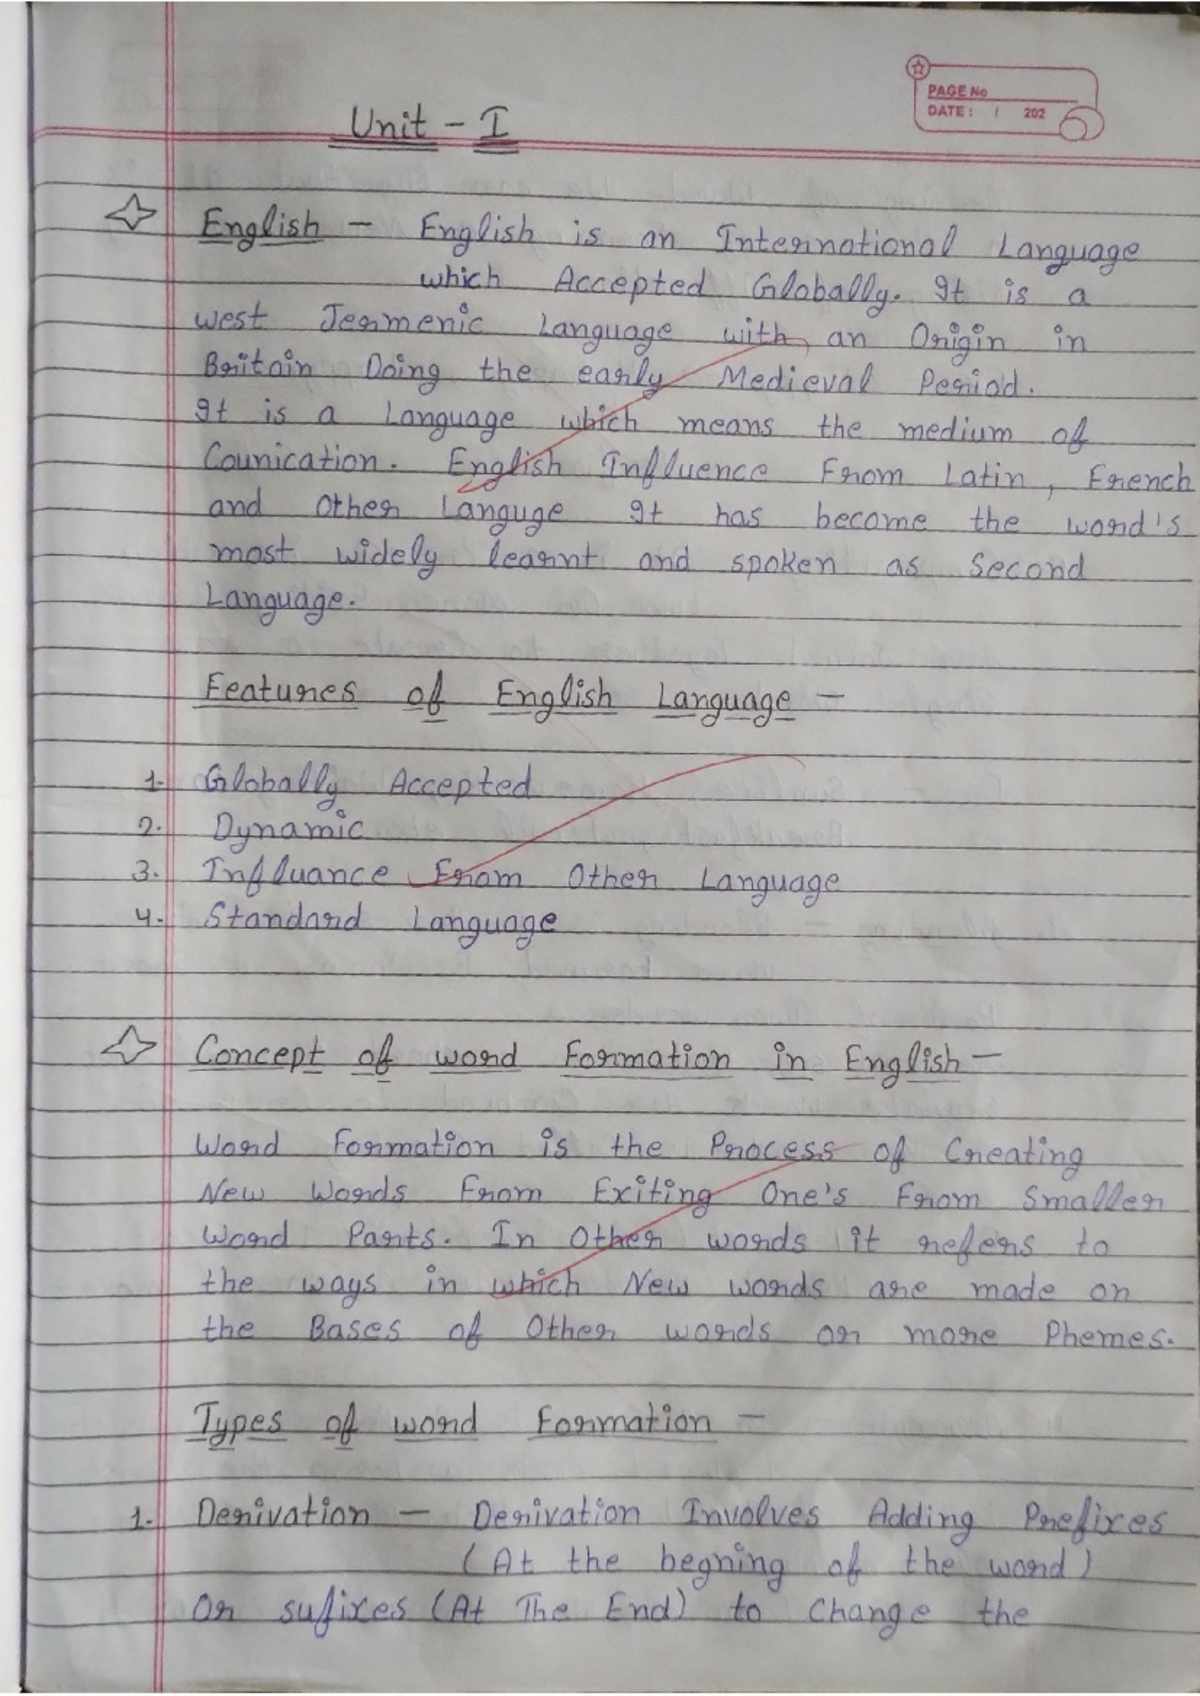 PAGE No
DATE: / 202
Unit - I
English - English is an International Language
which Accepted Globally. It is a
west Jermenic Language with an Origin in
Britain Doing the early Medieval Period.
It is a Language which means the medium of
Counication. English Influence From Latin, French
and Other Languge It has become the word's
most widely learnt and spoken as Second
Language.
Features of English Language -
1. Globally Accepted
2. Dynamic
3. Influance From Other Language
4. Standard Language
Concept of word Formation in English -
Word Formation is the Process of Creating
New Words From Exiting One's From Smaller
Word Parts. In Other words it refers to
the ways in which New words are made on
the Bases of Other words or more Phemes.
Types of word Formation -
1. Derivation - Derivation Involves Adding Prefixes
(At the begning of the word)
Or sufixes (At The End) to Change the